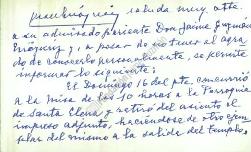 saluda muy atte.
a su admirado pariente Don Jaime Guzmán
Errázuriz y, a pesar de no tener el agra-
do de conocerlo personalmente, se permite
informar lo siguiente:
El Domingo 16 del pte. concurrió
a la misa de las 10 horas a la Parroquia
de Santa Elena y retiró del asiento el
impreso adjunto, haciéndose de otro ejem-
plar del mismo a la salida del templo.